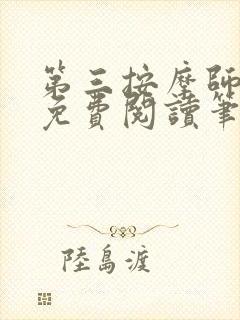 第三按摩師
免費閱讀筆
陸島渡